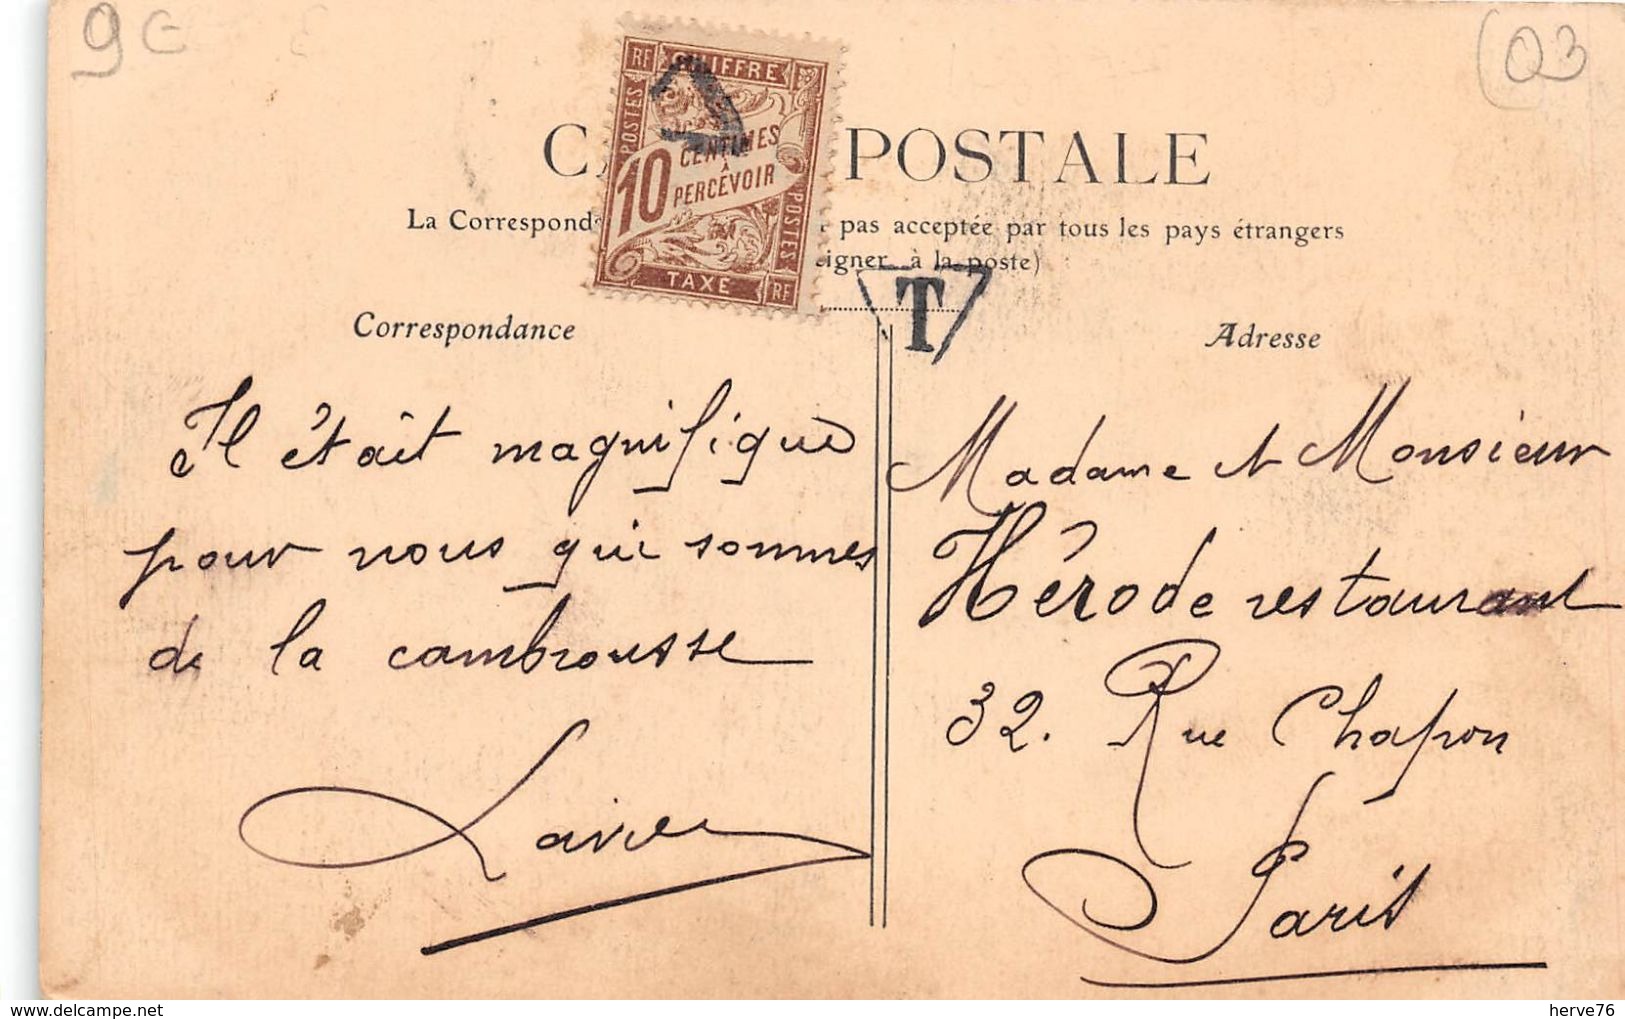 9 €
03
RF CHIFFRE
POSTES
10 CENTIMES
À
PERCEVOIR
POSTES
TAXE RF
POSTALE
La Correspond pas acceptée par tous les pays étrangers
eigner à la poste)
T
Correspondance
Adresse
Il était magnifique
pour nous qui sommes
de la cambrousse
Madame et Monsieur
Hérode restaurant
32. Rue Chapon
Paris
herve76